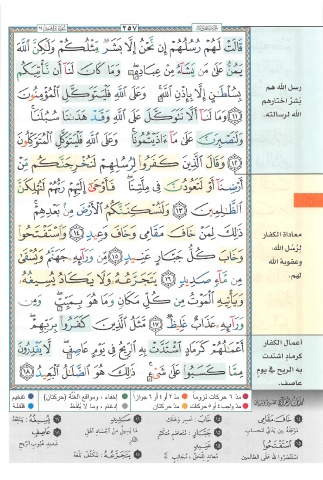 ٢٥٧
قَالَتْ لَهُمْ رُسُلُهُمْ إِن نَّحْنُ إِلَّا بَشَرٌ مِّثْلُكُمْ وَلَٰكِنَّ اللَّهَ
يَمُنُّ عَلَىٰ مَن يَشَاءُ مِنْ عِبَادِهِ ۖ وَمَا كَانَ لَنَا أَن نَّأْتِيَكُم
بِسُلْطَانٍ إِلَّا بِإِذْنِ اللَّهِ ۚ وَعَلَى اللَّهِ فَلْيَتَوَكَّلِ الْمُؤْمِنُونَ
﴿١١﴾ وَمَا لَنَا أَلَّا نَتَوَكَّلَ عَلَى اللَّهِ وَقَدْ هَدَانَا سُبُلَنَا ۚ
وَلَنَصْبِرَنَّ عَلَىٰ مَا آذَيْتُمُونَا ۚ وَعَلَى اللَّهِ فَلْيَتَوَكَّلِ الْمُتَوَكِّلُونَ
﴿١٢﴾ وَقَالَ الَّذِينَ كَفَرُوا لِرُسُلِهِمْ لَنُخْرِجَنَّكُم مِّنْ
أَرْضِنَا أَوْ لَتَعُودُنَّ فِي مِلَّتِنَا ۖ فَأَوْحَىٰ إِلَيْهِمْ رَبُّهُمْ لَنُهْلِكَنَّ
الظَّالِمِينَ ﴿١٣﴾ وَلَنُسْكِنَنَّكُمُ الْأَرْضَ مِن بَعْدِهِمْ ۚ
ذَٰلِكَ لِمَنْ خَافَ مَقَامِي وَخَافَ وَعِيدِ ﴿١٤﴾ وَاسْتَفْتَحُوا
وَخَابَ كُلُّ جَبَّارٍ عَنِيدٍ ﴿١٥﴾ مِّن وَرَائِهِ جَهَنَّمُ وَيُسْقَىٰ
مِن مَّاءٍ صَدِيدٍ ﴿١٦﴾ يَتَجَرَّعُهُ وَلَا يَكَادُ يُسِيغُهُ
وَيَأْتِيهِ الْمَوْتُ مِن كُلِّ مَكَانٍ وَمَا هُوَ بِمَيِّتٍ ۖ وَمِن
وَرَائِهِ عَذَابٌ غَلِيظٌ ﴿١٧﴾ مَّثَلُ الَّذِينَ كَفَرُوا بِرَبِّهِمْ ۖ
أَعْمَالُهُمْ كَرَمَادٍ اشْتَدَّتْ بِهِ الرِّيحُ فِي يَوْمٍ عَاصِفٍ ۖ لَّا يَقْدِرُونَ
مِمَّا كَسَبُوا عَلَىٰ شَيْءٍ ۚ ذَٰلِكَ هُوَ الضَّلَالُ الْبَعِيدُ ﴿١٨﴾
رسل الله هم
بشرٌ اختارهم
الله لرسالته.
معاداة الكفار
لرُسُل الله،
وعقوبة الله
لهم.
أعمال الكفار
كرمادٍ اشتدت
به الريح في يوم
عاصف.
مدّ ٦ حركات لزوماً
مدّ ٢ أو ٤ أو ٦ جوازاً
إخفاء، ومواقع الغُنَّة (حركتان)
تفخيم
مدّ حركتان
إدغام، وما لا يُلفَظ
قلقلة
خَافَ مَقَامِي